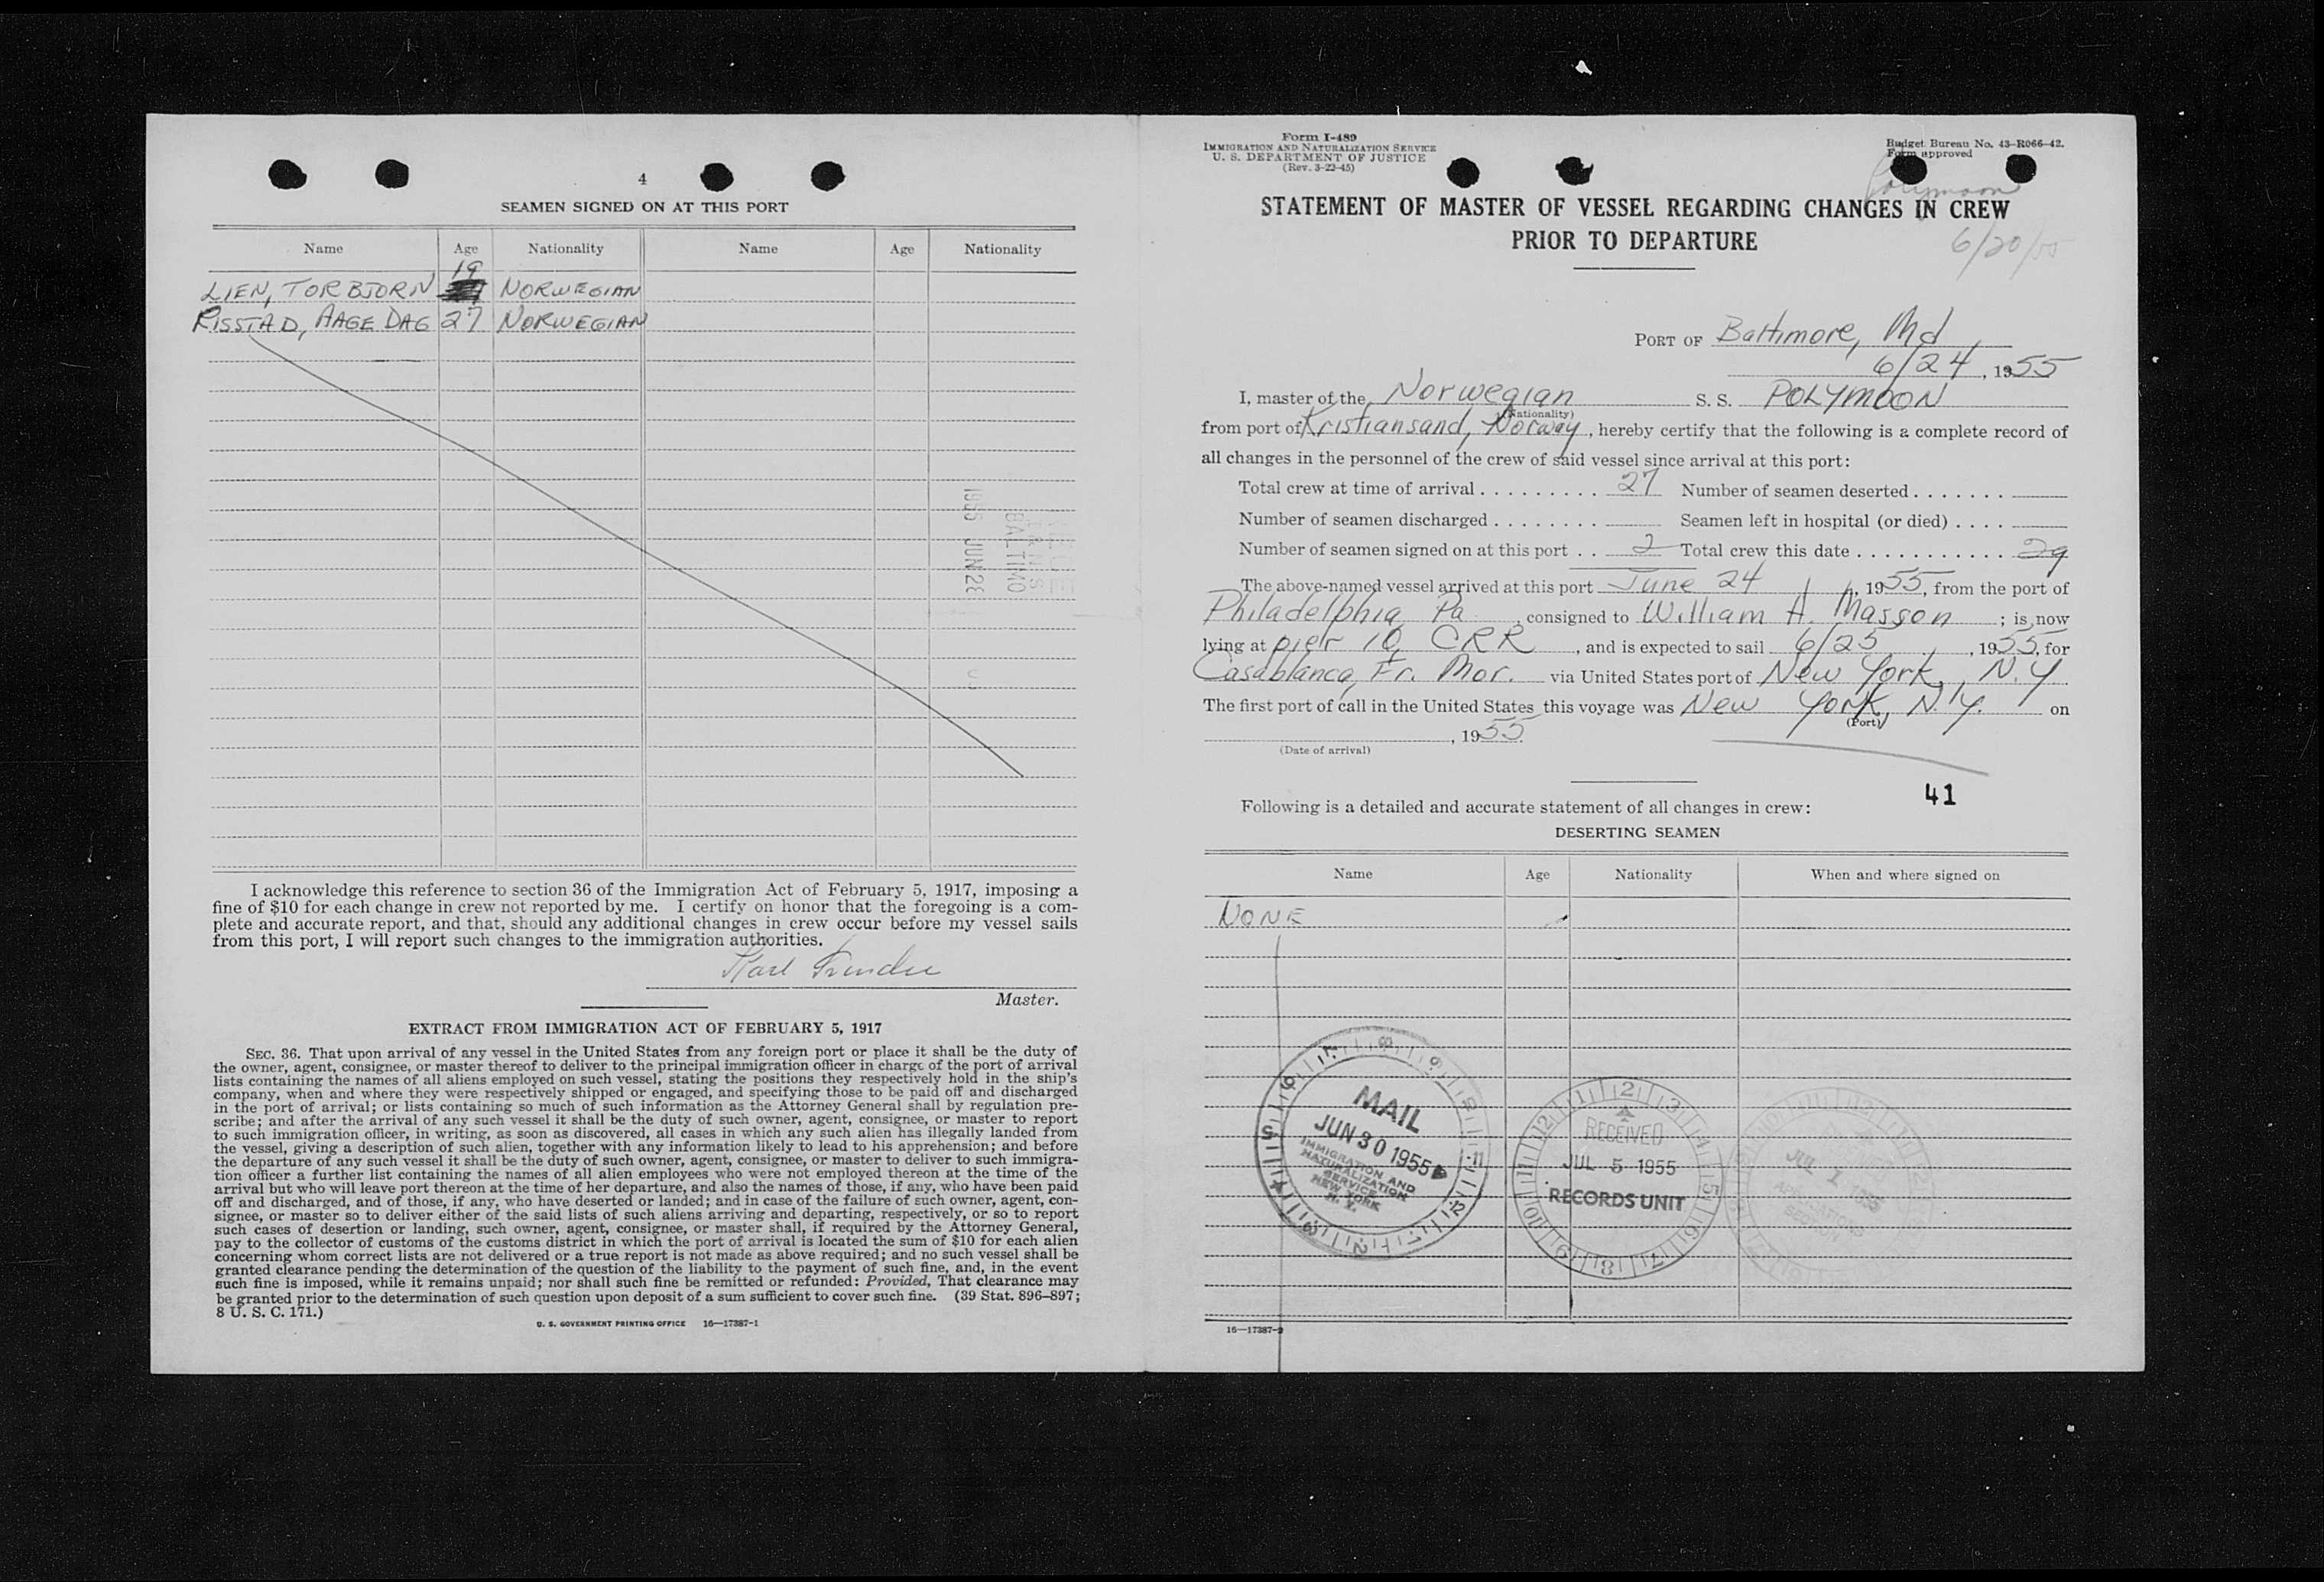 4
SEAMEN SIGNED ON AT THIS PORT
Name Age Nationality Name Age Nationality
19
LIEN, TORBJORN NORWEGIAN
RISSTAD, AAGE DAG 27 NORWEGIAN
1955 JUN 28
BALTIMO
I acknowledge this reference to section 36 of the Immigration Act of February 5, 1917, imposing a
fine of $10 for each change in crew not reported by me. I certify on honor that the foregoing is a com-
plete and accurate report, and that, should any additional changes in crew occur before my vessel sails
from this port, I will report such changes to the immigration authorities.
Karl
Master.
EXTRACT FROM IMMIGRATION ACT OF FEBRUARY 5, 1917
SEC. 36. That upon arrival of any vessel in the United States from any foreign port or place it shall be the duty of
the owner, agent, consignee, or master thereof to deliver to the principal immigration officer in charge of the port of arrival
lists containing the names of all aliens employed on such vessel, stating the positions they respectively hold in the ship's
company, when and where they were respectively shipped or engaged, and specifying those to be paid off and discharged
in the port of arrival; or lists containing so much of such information as the Attorney General shall by regulation pre-
scribe; and after the arrival of any such vessel it shall be the duty of such owner, agent, consignee, or master to report
to such immigration officer, in writing, as soon as discovered, all cases in which any such alien has illegally landed from
the vessel, giving a description of such alien, together with any information likely to lead to his apprehension; and before
the departure of any such vessel it shall be the duty of such owner, agent, consignee, or master to deliver to such immigra-
tion officer a further list containing the names of all alien employees who were not employed thereon at the time of the
arrival but who will leave port thereon at the time of her departure, and also the names of those, if any, who have been paid
off and discharged, and of those, if any, who have deserted or landed; and in case of the failure of such owner, agent, con-
signee, or master so to deliver either of the said lists of such aliens arriving and departing, respectively, or so to report
such cases of desertion or landing, such owner, agent, consignee, or master shall, if required by the Attorney General,
pay to the collector of customs of the customs district in which the port of arrival is located the sum of $10 for each alien
concerning whom correct lists are not delivered or a true report is not made as above required; and no such vessel shall be
granted clearance pending the determination of the question of the liability to the payment of such fine, and, in the event
such fine is imposed, while it remains unpaid; nor shall such fine be remitted or refunded: Provided, That clearance may
be granted prior to the determination of such question upon deposit of a sum sufficient to cover such fine. (39 Stat. 896–897;
8 U. S. C. 171.)
U. S. GOVERNMENT PRINTING OFFICE 16—17387-1
Form I-489
IMMIGRATION AND NATURALIZATION SERVICE
U. S. DEPARTMENT OF JUSTICE
(Rev. 3-22-45)
Budget Bureau No. 43-R066-42.
Form approved
Polymoon
STATEMENT OF MASTER OF VESSEL REGARDING CHANGES IN CREW
PRIOR TO DEPARTURE
6/20/55
PORT OF Baltimore, Md
6/24, 1955
I, master of the Norwegian S. S. POLYMOON
(Nationality)
from port of Kristiansand, Norway, hereby certify that the following is a complete record of
all changes in the personnel of the crew of said vessel since arrival at this port:
Total crew at time of arrival . . . . . . . . . 27 Number of seamen deserted . . . . . . .
Number of seamen discharged . . . . . . . . Seamen left in hospital (or died) . . . .
Number of seamen signed on at this port . . 2 Total crew this date . . . . . . . . . . . 29
The above-named vessel arrived at this port June 24, 1955, from the port of
Philadelphia, Pa, consigned to William H. Masson; is now
lying at pier 10, CRR, and is expected to sail 6/25, 1955, for
Casablanca, Fr. Mor. via United States port of New York, N.Y.
The first port of call in the United States this voyage was New York, N.Y. on
(Port)
, 1955
(Date of arrival)
41
Following is a detailed and accurate statement of all changes in crew:
DESERTING SEAMEN
Name Age Nationality When and where signed on
NONE
MAIL
JUN 30 1955
IMMIGRATION AND
NATURALIZATION
SERVICE
NEW YORK
N. Y.
RECEIVED
JUL 5 1955
RECORDS UNIT
JUL 1 1955
16—17387-2